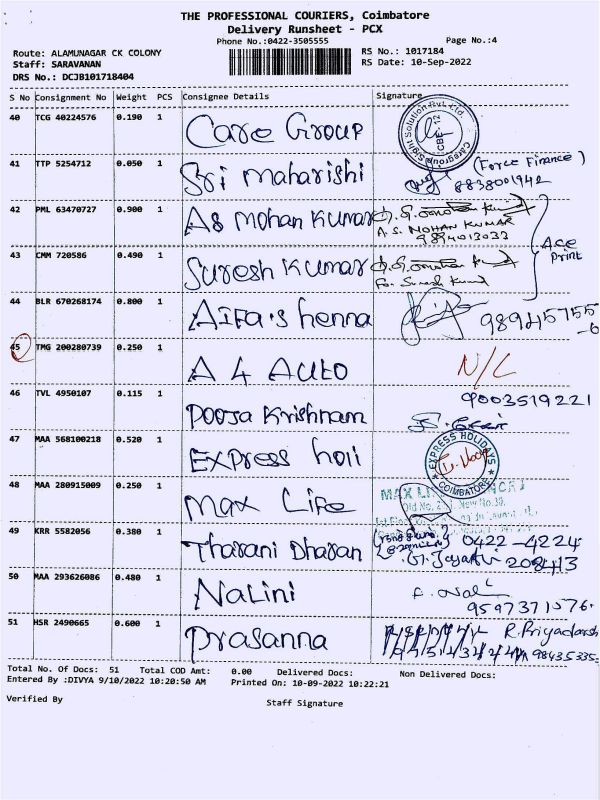 THE PROFESSIONAL COURIERS, Coimbatore
Delivery Runsheet - PCX
Phone No.:0422-3505555 Page No.:4
Route: ALAMUNAGAR CK COLONY RS No.: 1017184
Staff: SARAVANAN RS Date: 10-Sep-2022
DRS No.: DCJB101718404
S No Consignment No Weight PCS Consignee Details Signature
40 TCG 40224576 0.190 1 Care Group
41 TTP 5254712 0.050 1 Sri maharishi (Force Finance) 8838001942
42 PML 63470727 0.900 1 AS mohan Kumar A.S. MOHAN KUMAR 9894013033
Ace Print
43 CMM 720586 0.490 1 Suresh Kumar For Suresh Kumar
44 BLR 670268174 0.800 1 AIFA's henna
45 TMG 200280739 0.250 1 A 4 AUTO N/L
46 TVL 4950107 0.115 1 Pooja Krishnam 9003519221
47 MAA 568100218 0.520 1 Express holi EXPRESS HOLIDAYS COIMBATORE
48 MAA 280915009 0.250 1 Max Life
49 KRR 5582056 0.380 1 Tharani Dharan 0422-4224 208413
50 MAA 293626086 0.480 1 Nalini 9597371576.
51 HSR 2490665 0.600 1 Prasanna R.Priyadarsh
Total No. Of Docs: 51 Total COD Amt: 0.00 Delivered Docs: Non Delivered Docs:
Entered By :DIVYA 9/10/2022 10:20:50 AM Printed On: 10-09-2022 10:22:21
Verified By Staff Signature